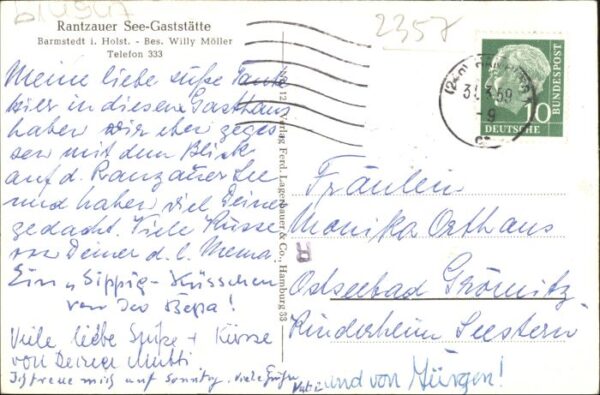 2357
Rantzauer See-Gaststätte
Barmstedt i. Holst. - Bes. Willy Möller
Telefon 333
Meine liebe süße Tante
hier in diesem Gasthaus
haben wir eben geges
sen mit dem Blick
auf d. Ranzauer See
und haben viel Deiner
gedacht. Viele Küsse
von Deiner d. l. Mema
Ein "Sippig-Küsschen
von
Viele liebe Grüße + Küsse
von Deiner Mutti
Ich freue mich auf Sonntag. Viele Grüße
und von Jürgen!
Verlag Ferd. Lagerbauer & Co., Hamburg 33
31.3.59
-9
10
DEUTSCHE
BUNDESPOST
Fräulein
Monika Orthaus
Ostseebad Grömitz
Kinderheim Seestern